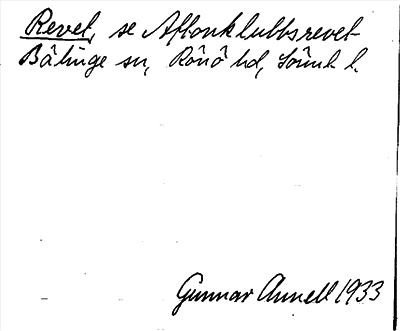 Revet, se Aftonklubbsrevet
Bälinge sn, Rönö hd, Söml. l.
Gunnar Annell 1933